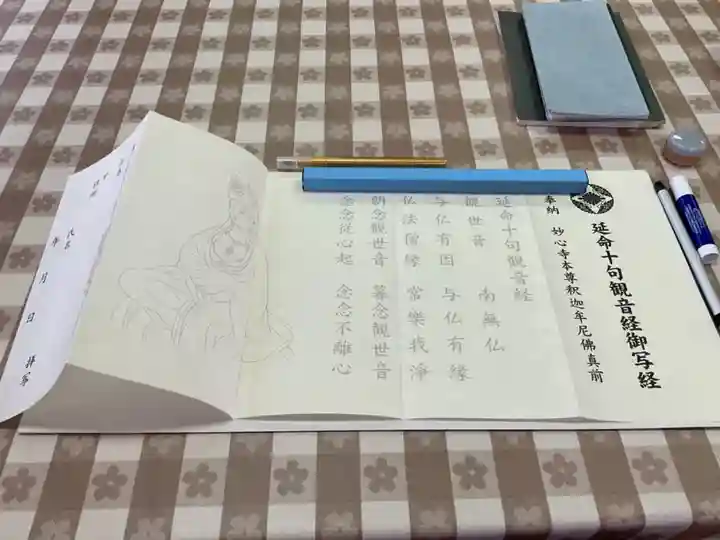 延命十句観音経御写経
奉納 妙心寺本尊釈迦牟尼佛真前
延命十句観音経
観世音 南無仏
与仏有因 与仏有縁
仏法僧縁 常樂我淨
朝念観世音 暮念観世音
念念従心起 念念不離心
年 月 日 拝写